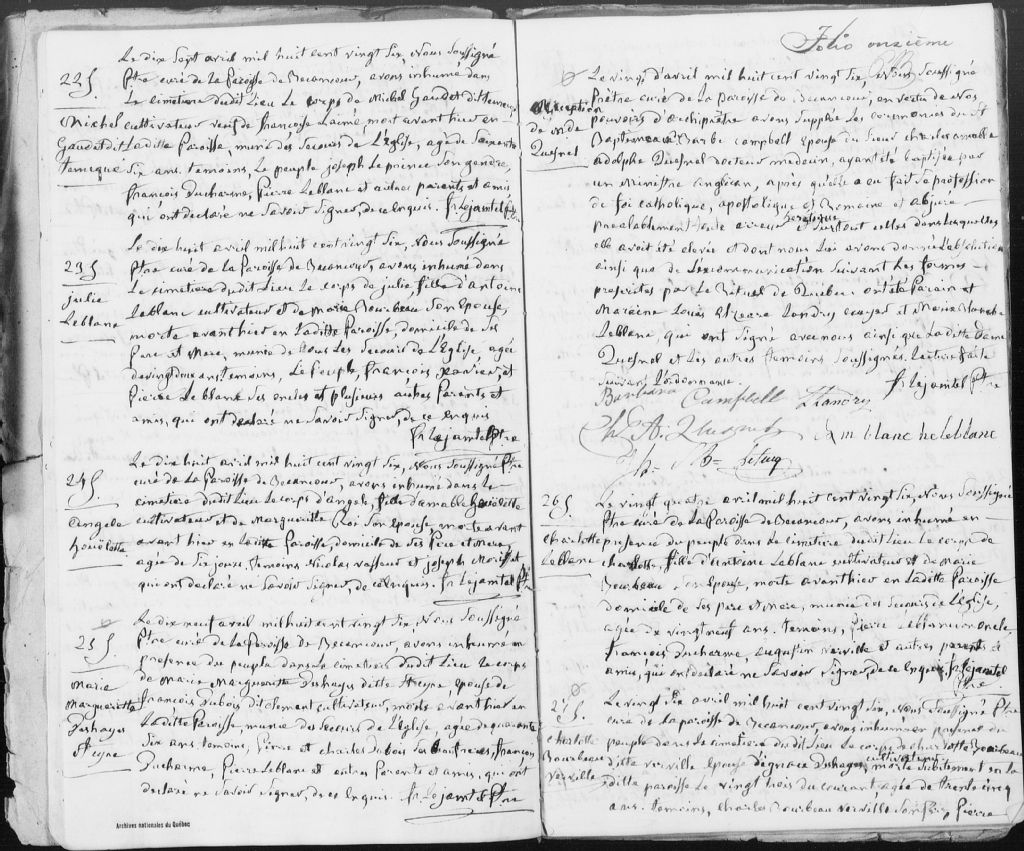 Le dix Sept avril mil huit cent vingt Six, Nous Soussigné
22 S. Ptre curé de La Paroisse de Becancour, avons inhumé dans
Le cimetiere dudit Lieu Le corps de Michel Gaudet dit
Michel cultivateur veuf de françoise Lainé, mort avant hier en
Gaudet dit Laditte Paroisse, muni des Secours de L'Eglise, agé de Soixante
Six ans. temoins, Le peuple, joseph Le prince Son gendre,
françois Ducharme, Pierre Leblanc et autres parents et amis
qui ont declaré ne Savoir Signer, de ce enquis. fr Lejamtel Ptre
Le dix huit avril mil huit cent vingt Six, Nous Soussigné
23 S. Ptre curé de La Paroisse de Becancour, avons inhumé dans
Le cimetiere dudit Lieu Le corps de julie fille d'antoine
julie
Leblanc Leblanc cultivateur et de Marie Bourbeau Son Epouse,
morte avant hier en Laditte Paroisse, domicile de Ses
Pere et Mere, munie de tous Les Secours de L'Eglise, agée
de vingt deux ans. temoins, Le Peuple, françois xavier, et
Pierre Leblanc Ses oncles et plusieurs autres Parents et
amis, qui ont declaré ne Savoir Signer, de ce enquis
fr Lejamtel Ptre
Le dix huit avril mil huit cent vingt Six, Nous Soussigné Ptre
24 S. curé de La Paroisse de Becancour, avons inhumé dans Le
cimetiere dudit Lieu Le corps d'angele, fille d'amable
angele cultivateur et de Margueritte Roi Son Epouse, morte avant
avant hier en Laditte Paroisse, domicile de Ses Pere et Mere,
agée de Six jours. temoins Nicolas vasseur et joseph Morissette
qui ont declaré ne Savoir Signer, de ce enquis. fr Lejamtel Ptre
Le dix neuf avril mil huit cent vingt Six, Nous Soussigné
25 S. Ptre curé de La Paroisse de Becancour, avons inhumé en
presence du peuple dans Le cimetiere dudit Lieu Le corps
Marie de Marie Margueritte Deshayes ditte St cyre, Epouse de
Margueritte françois Dubois dit clement cultivateur, morte avant hier en
Deshayes
St cyre Laditte Paroisse, munie des Secours de L'Eglise, agée de quarante
Six ans. temoins, Pierre et charles Dubois Ses beaufreres, françois
Ducharme, Pierre Leblanc et autres Parents et amis, qui ont
declaré ne Savoir Signer, de ce enquis. fr Lejamtel Ptre
Archives nationales du Québec
Folio onzième
Le vingt d'avril mil huit cent vingt Six, Nous Soussigné
Prêtre curé de La Paroisse de Becancour, en vertu de Nos
Réception
de mde
Quesnel
pouvoirs d'archiprêtre avons Supplée Les ceremonies du St
Baptême a Barbe campbell Epouse du Sieur charles
adolphe Quesnel docteur medecin, ayant été baptisée par
un Ministre anglican, après qu'elle a eu fait Sa profession
de foi catholique, apostolique et Romaine et abjuré
prealablement toute erreur et Surtout celles dans Lesquelles
elle avoit été elevée et dont nous Lui avons donné L'absolution
ainsi que de L'excommunication Suivant Les formes
prescrites par Le Rituel de Quebec. ont été Parain et
Maraine Louis Landry ecuyer et Marie
Leblanc, qui ont Signé avec nous ainsi que Laditte Dame
Quesnel et Les autres temoins Soussignés. Lecture faite
Suivant L'ordonnance. fr Lejamtel Ptre
Barbara Campbell Landry
Ch A. Quesnel
Le vingt quatre avril mil huit cent vingt Six, Nous Soussigné
26 S. Ptre curé de La Paroisse de Becancour, avons inhumé en
charlotte presence du peuple dans Le cimetiere dudit Lieu Le corps de
Leblanc charlotte, fille d'antoine Leblanc cultivateur et de Marie
Bourbeau Son Epouse, morte avant hier en Laditte Paroisse
domicile de Ses pere et mere, munie des Secours de L'Eglise,
agée de vingt neuf ans. temoins, Pierre Leblanc Son oncle,
françois Ducharme, augustin verville et autres parents et
amis, qui ont declaré ne Savoir Signer, de ce enquis. fr Lejamtel
Ptre
Le vingt Six avril mil huit cent vingt Six, Nous Soussigné Ptre
27 S. curé de La paroisse de Becancour, avons inhumé en presence du
charlotte peuple dans Le cimetiere dudit Lieu Le corps de charlotte Bourbeau
Bourbeau
verville ditte verville Epouse d'ignace Deshayes, cultivateur, morte Subitement en La
ditte paroisse Le vingt trois du courant agée de trente cinq
ans. temoins, charles Bourbeau verville Son frere, Pierre